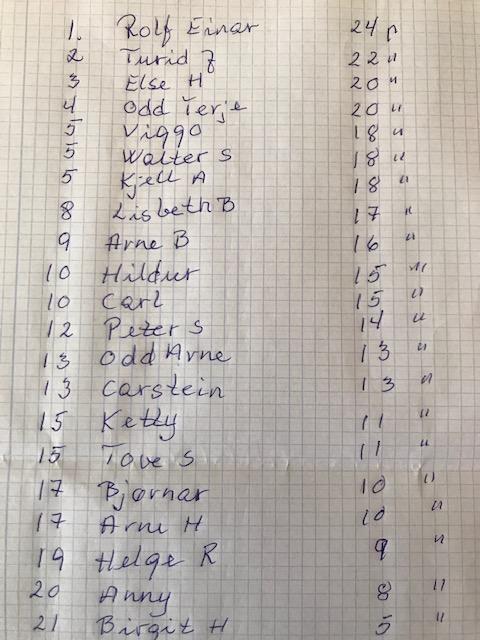 1. Rolf Einar 24 p
2 Turid J 22 "
3 Else H 20 "
4 Odd Terje 20 "
5 Viggo 18 "
5 Walter S 18 "
5 Kjell A 18 "
8 Lisbeth B 17 "
9 Arne B 16 "
10 Hildur 15 "
10 Carl 15 "
12 Peter S 14 "
13 Odd Arne 13 "
13 Carstein 13 "
15 Ketty 11 "
15 Tove S 11 "
17 Bjørnar 10 "
17 Arne H 10 "
19 Helge R 9 "
20 Anny 8 "
21 Birgit H 5 "